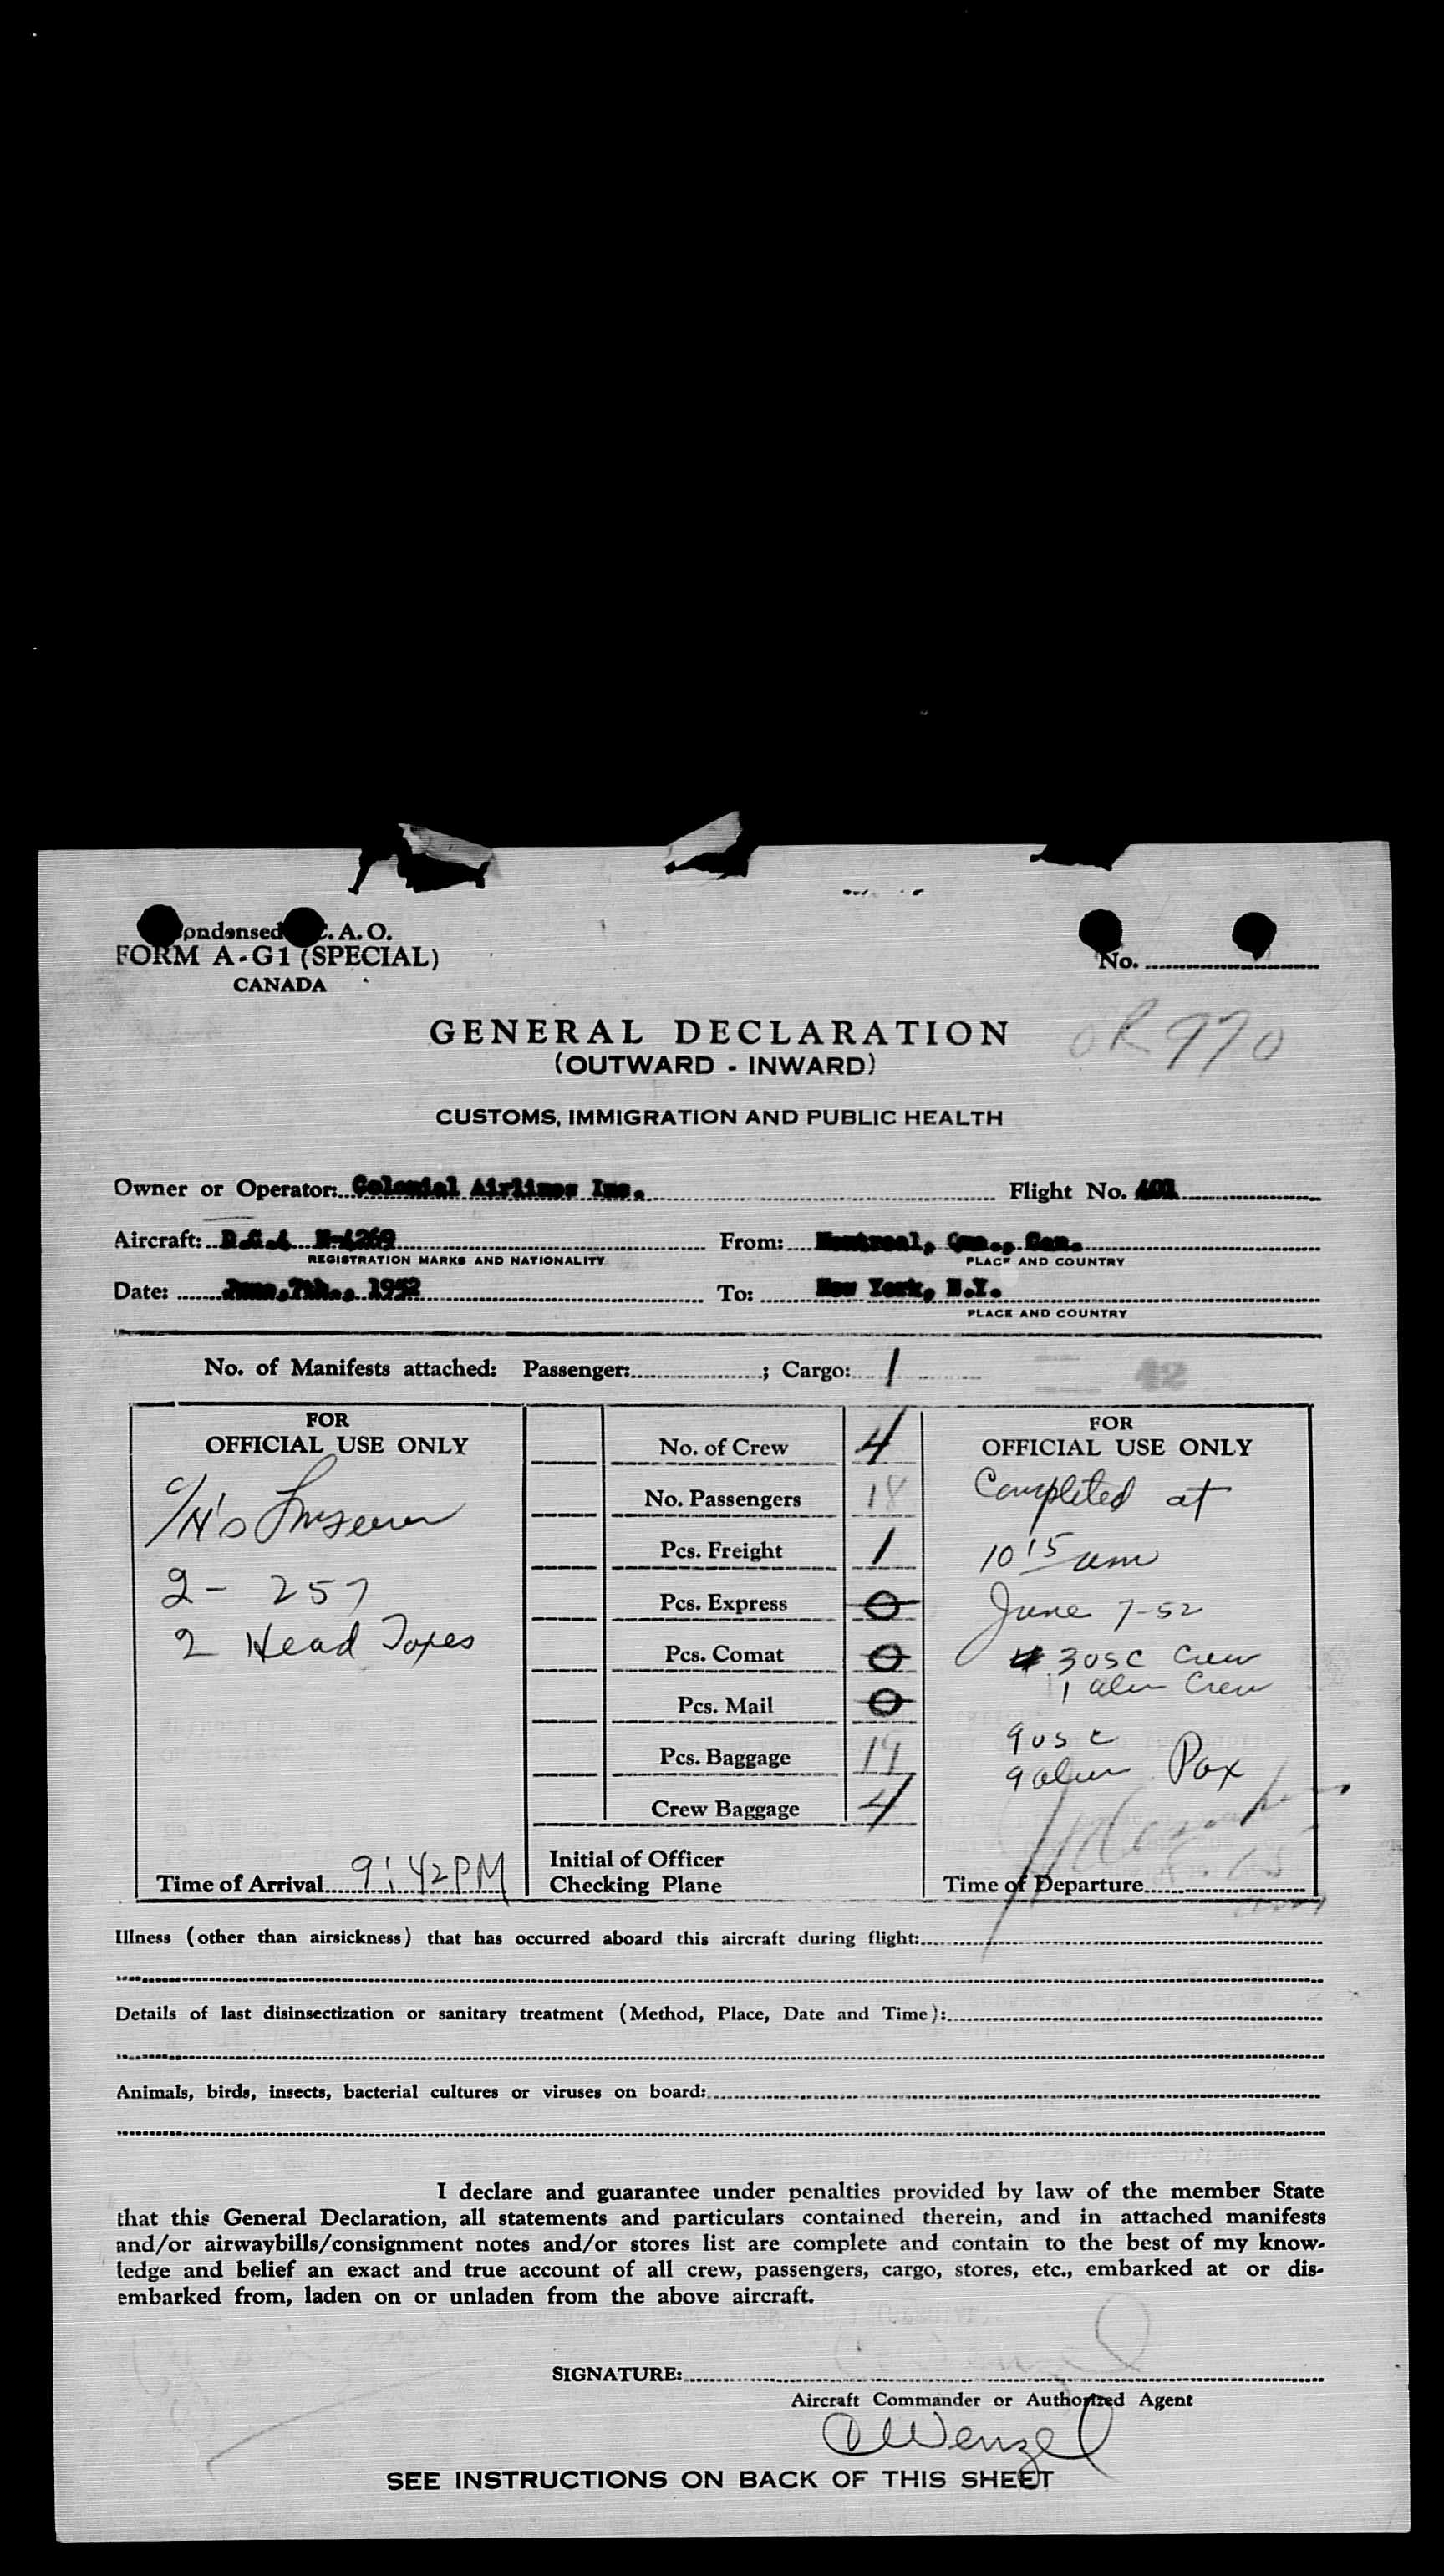 Condensed I.C.A.O.
FORM A-G1 (SPECIAL)
CANADA
No.
GENERAL DECLARATION
OR 970
(OUTWARD - INWARD)
CUSTOMS, IMMIGRATION AND PUBLIC HEALTH
Owner or Operator: Colonial Airlines Inc. Flight No.
Aircraft: D.C.4 N-4269 From: Montreal, Que., Can.
REGISTRATION MARKS AND NATIONALITY PLACE AND COUNTRY
Date: June, 7th., 1952 To: New York, N.Y.
PLACE AND COUNTRY
No. of Manifests attached: Passenger: ; Cargo: 1
42
FOR
OFFICIAL USE ONLY
2 - 257
2 Head Taxes
Time of Arrival 9:42PM
No. of Crew 4
No. Passengers 18
Pcs. Freight 1
Pcs. Express 0
Pcs. Comat 0
Pcs. Mail 0
Pcs. Baggage 19
Crew Baggage 4
Initial of Officer
Checking Plane
FOR
OFFICIAL USE ONLY
Completed at
10 15 am
June 7-52
3 USC Crew
1 alien Crew
9 USC
9 alien Pax
Time of Departure
Illness (other than airsickness) that has occurred aboard this aircraft during flight:
Details of last disinsectization or sanitary treatment (Method, Place, Date and Time):
Animals, birds, insects, bacterial cultures or viruses on board:
I declare and guarantee under penalties provided by law of the member State
that this General Declaration, all statements and particulars contained therein, and in attached manifests
and/or airwaybills/consignment notes and/or stores list are complete and contain to the best of my know-
ledge and belief an exact and true account of all crew, passengers, cargo, stores, etc., embarked at or dis-
embarked from, laden on or unladen from the above aircraft.
SIGNATURE:
Aircraft Commander or Authorized Agent
Wenzel
SEE INSTRUCTIONS ON BACK OF THIS SHEET